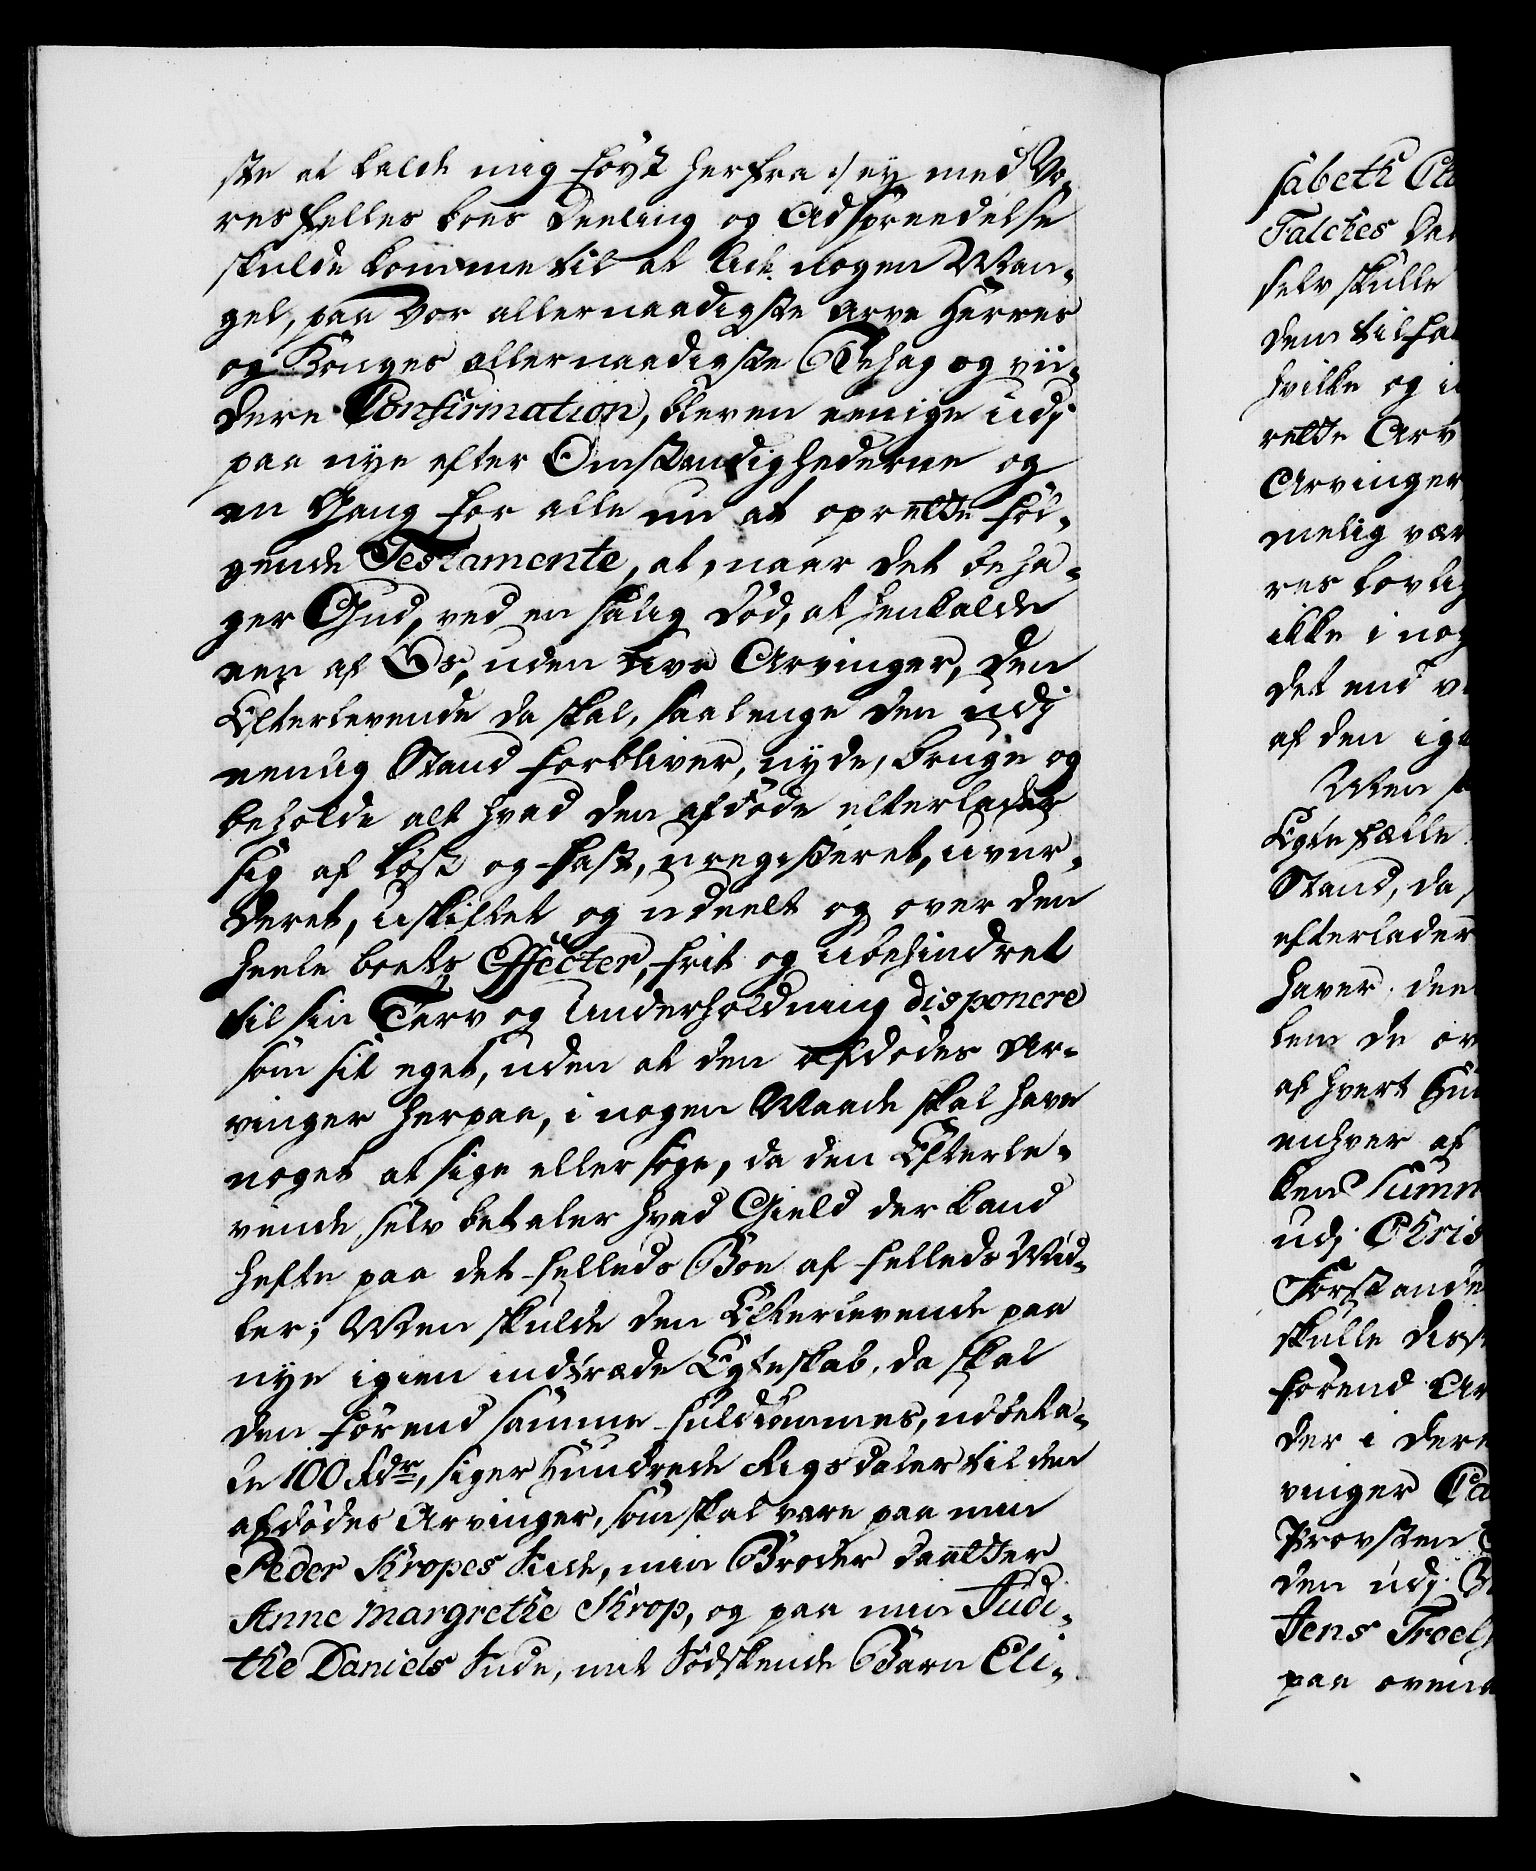 ste at kalde mig først herfra :/ ey med Vo-
res felles boes Deeling og Adspreedelse
skulde komme til at lide nogen Man-
gel, paa Vor allernaadigste Arve Herres
og Konges allernaadigste Behag og vii-
dere Confirmation, bleven eenige udj
paa nye efter Omstændighederne og
en Gang for alle nu at oprette føl-
gende Testamente, at, naar det beha-
ger Gud, ved en salig Død, at henkalde
een af Os, uden Livs Arvinger, den
Efterlevende da skal, saalenge den udj
eenlig Stand forbliver, nyde, bruge og
beholde alt hvad den afdøde efterlader
sig af løst og fast, uregisteret, uvur-
deret, uskiftet og udeelt og over den
heele boets Effecter, frit og ubehindret
til sin Tarv og Underholdning disponere
som sit eget, uden at den afdødes Ar-
vinger herpaa, i nogen Maade skal have
noget at sige eller søge, da den Efterle-
vende selv betaler hvad Gield der kand
hefte paa det felleds Boe af felleds Mid-
ler; Men skulde den Efterlevende paa
nye igien indtræde Egteskab, da skal
den førend samme fuldkommes, udbeta-
le 100 Rdr, siger Hundrede Rigsdaler til den
afdødes Arvinger, som skal være paa min
Peder Kropes Side, min Broder Daatter
Anne Margrethe Krop, og paa min Judi-
the Daniels Side, mit Sødskende Barn Eli-
sabeth
Falches
selv skulle
dem
hvilke og
rette
Arvinger
melig
res
ikke i
det end
af den
Men
Egtefælle
Stand, da
efterlader
haver
lem de
af hvert
enhver af
ken
udj
skulle
førend
der i
vinger
Provsten
den udj
Jens
paa